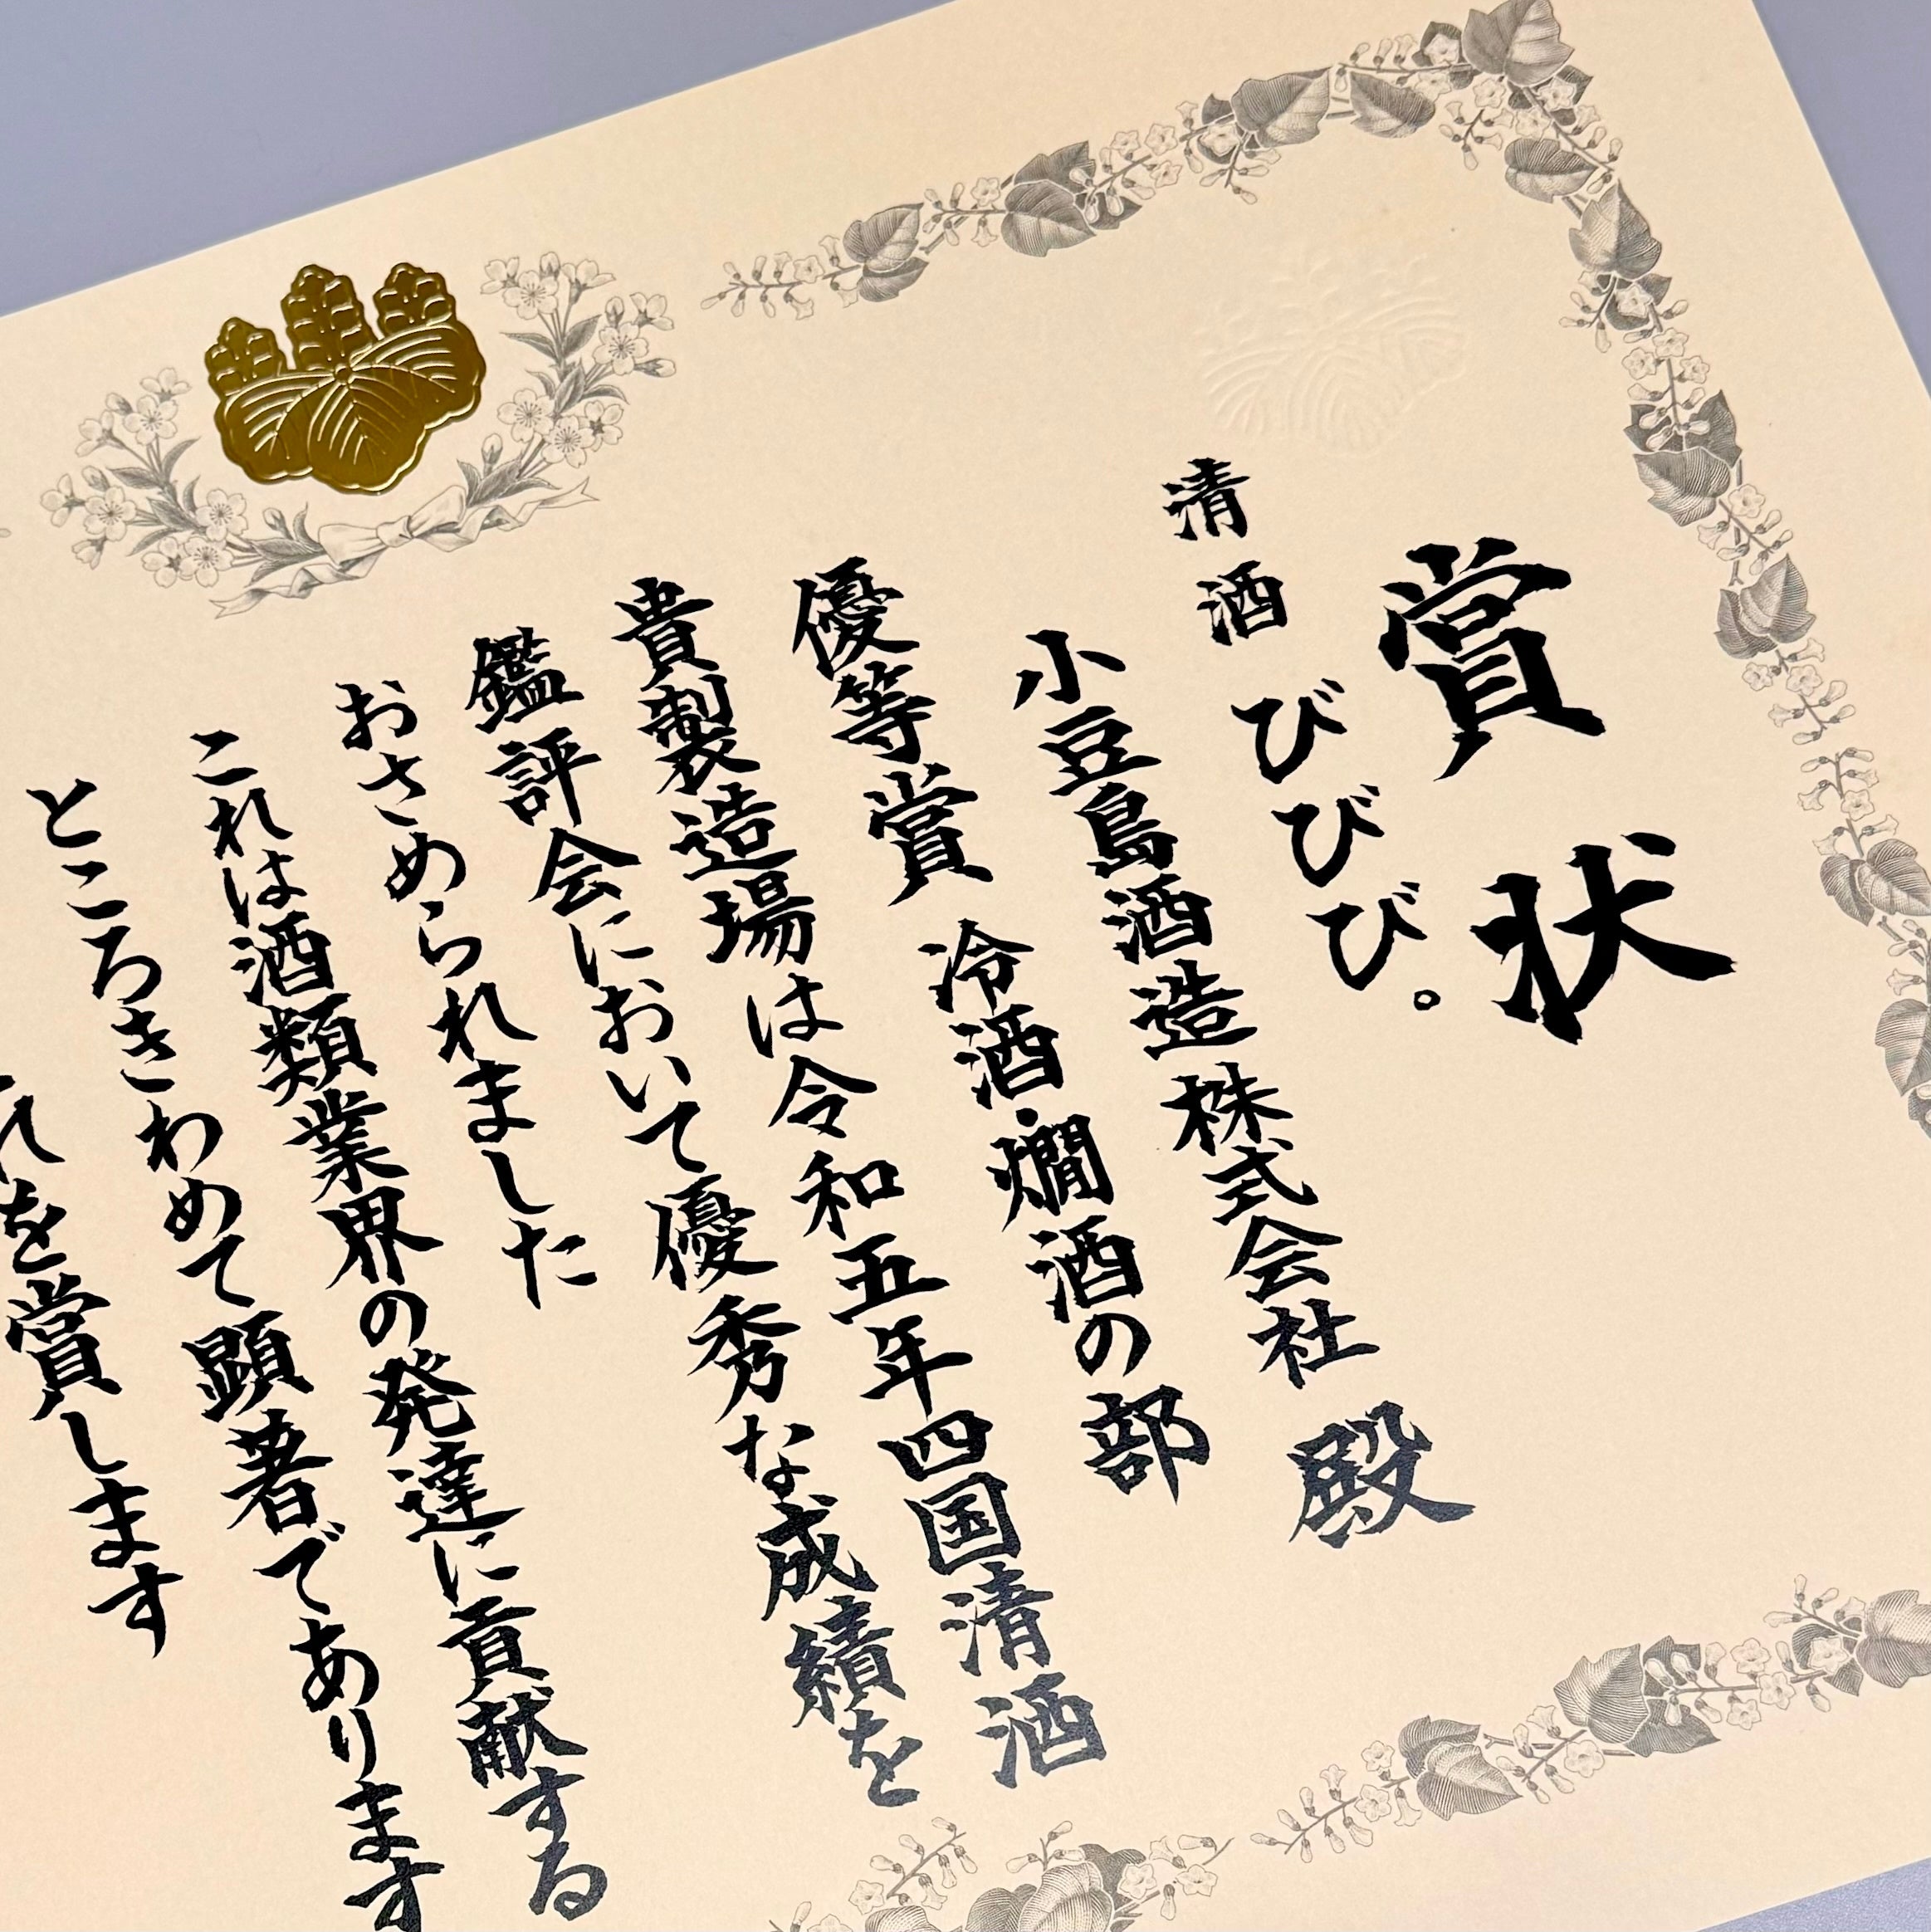 賞状
清酒 びびび。
小豆島酒造株式会社 殿
優等賞 冷酒・燗酒の部
貴製造場は令和五年四国清酒
鑑評会において優秀な成績を
おさめられました
これは酒類業界の発達に貢献する
ところきわめて顕著であります
れを賞します